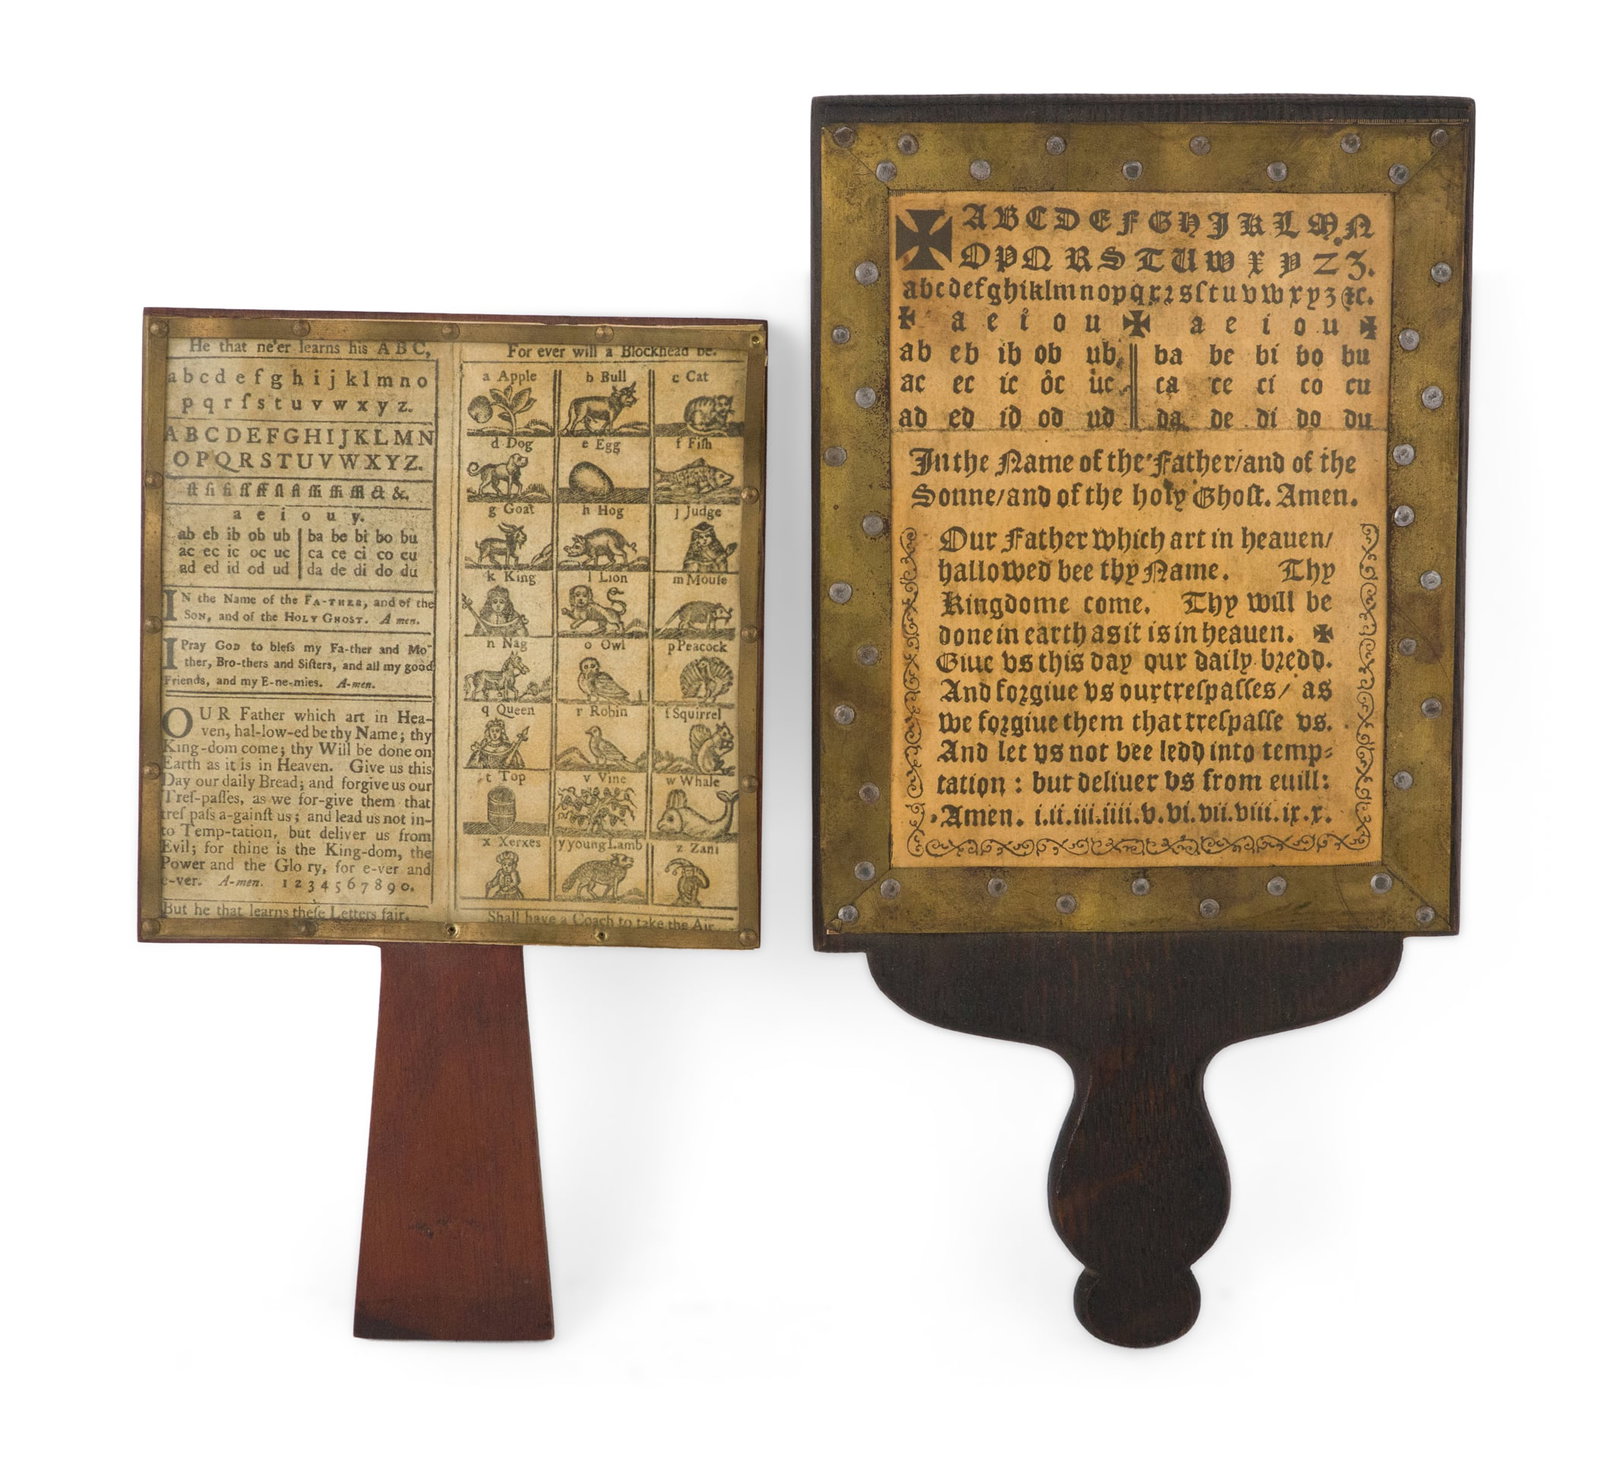 He that ne'er learns his A B C,
a b c d e f g h i j k l m n o
p q r ſ s t u v w x y z.
A B C D E F G H I J K L M N
O P Q R S T U V W X Y Z.
a e i o u y.
ab eb ib ob ub | ba be bi bo bu
ac ec ic oc uc | ca ce ci co cu
ad ed id od ud | da de di do du
IN the Name of the FA-THER, and of the
SON, and of the HOLY GHOST. A men.
I Pray GOD to bleſs my Fa-ther and Mo-
ther, Bro-thers and Siſters, and all my good
Friends, and my E-ne-mies. A-men.
OUR Father which art in Hea-
ven, hal-low-ed be thy Name; thy
King-dom come; thy Will be done on
Earth as it is in Heaven. Give us this
Day our daily Bread; and forgive us our
Treſ-paſſes, as we for-give them that
treſ paſs a-gainſt us; and lead us not in-
to Temp-tation, but deliver us from
Evil; for thine is the King-dom, the
Power and the Glo ry, for e-ver and
e-ver. A-men. 1 2 3 4 5 6 7 8 9 0.
But he that learns theſe Letters fair,
For ever will a Blockhead be.
a Apple b Bull c Cat
d Dog e Egg f Fiſh
g Goat h Hog j Judge
k King l Lion m Mouſe
n Nag o Owl p Peacock
q Queen r Robin ſ Squirrel
t Top v Vine w Whale
x Xerxes y young Lamb z Zani
Shall have a Coach to take the Air.
✠ A B C D E F G H J K L M N
O P Q R S T U W X Y Z 3.
abcdefghiklmnopqrꝛsſtuvwxyz &c.
✠ a e i o u ✠ a e i o u ✠
ab eb ib ob ub || ba be bi bo bu
ac ec ic oc uc || ca ce ci co cu
ad ed id od ud || da de di do du
In the Name of the Father/and of the
Sonne/and of the holy Ghoſt. Amen.
Our Father which art in heauen/
hallowed bee thy Name. Thy
Kingdome come. Thy will be
done in earth as it is in heauen. ✠
Giue vs this day our daily bꝛedd.
And foꝛgiue vs our treſpaſſes/ as
we foꝛgiue them that treſpaſſe vs.
And let vs not bee ledd into temp⸗
tation : but deliuer vs from euill:
Amen. i.ii.iii.iiii.v.vi.vii.viii.ix.x.